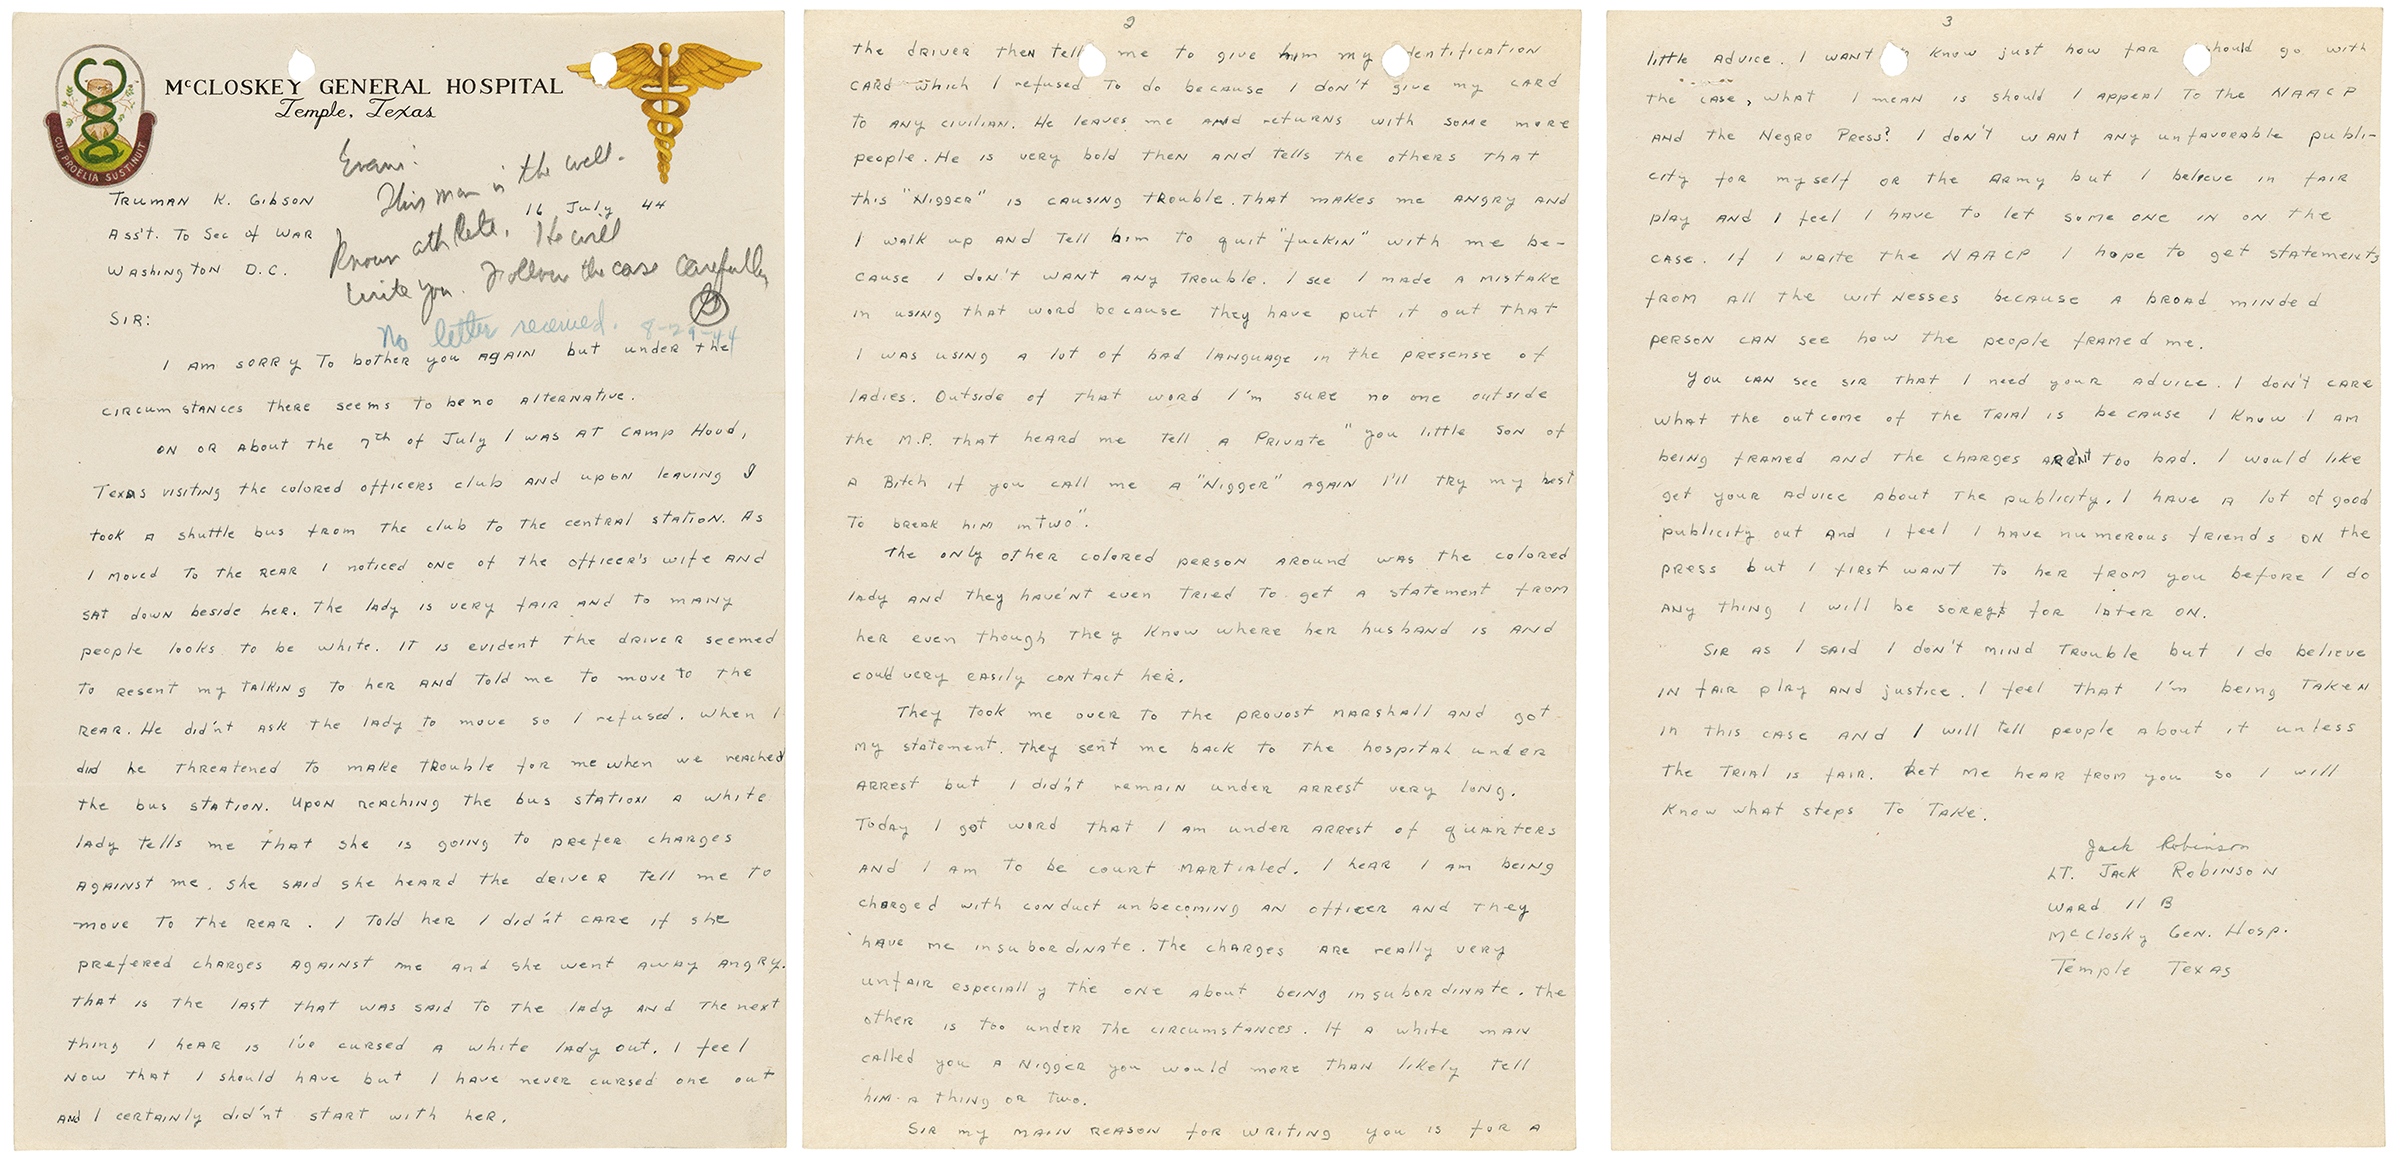 McCLOSKEY GENERAL HOSPITAL
Temple, Texas
CUI PROELIA SUSTINUIT
Evans:
This man is the well.
Known athlete. He will
write you. Follow the case carefully
No letter received. 8-29-44
TRUMAN K. GIBSON
16 July 44
ASS'T. TO SEC of WAR
WASHINGTON D.C.
SIR:
I AM SORRY TO bother you AGAIN but under the
circumstances there seems to be no alternative.
ON OR About the 7th of July I was AT CAMP Hood,
Texas visiting the colored officers club AND upon leaving I
took A shuttle bus from the club to the central station. As
I moved to the rear I noticed one of the officer's wife AND
sat down beside her. The lady is very fair AND to many
people looks to be white. It is evident the driver seemed
to resent my talking to her AND told me to move to the
rear. He didn't ask the lady to move so I refused. When I
did he threatened to make trouble for me when we reached
the bus station. Upon reaching the bus station a white
lady tells me that she is going to prefer charges
against me. She said she heard the driver tell me to
move to the rear. I told her I didn't care if she
prefered charges against me and she went away angry.
That is the last that was said to the lady AND the next
thing I hear is I've cursed a white lady out. I feel
now that I should have but I have never cursed one out
AND I certainly didn't start with her.
2
the driver then tell me to give him my dentification
card which I refused to do because I don't give my card
to any civilian. He leaves me and returns with some more
people. He is very bold then and tells the others that
this "Nigger" is causing trouble. That makes me angry and
I walk up and tell him to quit "fuckin" with me be-
cause I don't want any trouble. I see I made a mistake
in using that word because they have put it out that
I was using a lot of bad language in the presense of
ladies. Outside of that word I'm sure no one outside
the M.P. that heard me tell a Private "you little son of
a Bitch if you call me a "Nigger" again I'll try my best
to break him in two".
The only other colored person around was the colored
lady and they have'nt even tried to get a statement from
her even though they know where her husband is and
could very easily contact her.
They took me over to the provost marshall and got
my statement. They sent me back to the hospital under
arrest but I didn't remain under arrest very long.
Today I got word that I am under arrest of quarters
and I am to be court martialed. I hear I am being
charged with conduct unbecoming an officer and they
have me insubordinate. The charges are really very
unfair especially the one about being insubordinate. The
other is too under the circumstances. If a white man
called you a Nigger you would more than likely tell
him a thing or two.
Sir my main reason for writing you is for a
3
little advice. I want know just how far hould go with
the case, what I mean is should I appeal to the NAACP
and the Negro Press? I don't want any unfavorable publi-
city for myself or the Army but I believe in fair
play and I feel I have to let some one in on the
case. If I write the NAACP I hope to get statements
from all the witnesses because a broad minded
person can see how the people framed me.
You can see sir that I need your advice. I don't care
what the outcome of the trial is because I know I am
being framed and the charges aren't too bad. I would like
get your advice about the publicity. I have a lot of good
publicity out and I feel I have numerous friends on the
press but I first want to her from you before I do
any thing I will be sorry for later on.
Sir as I said I don't mind trouble but I do believe
in fair play and justice. I feel that I'm being taken
in this case and I will tell people about it unless
the trial is fair. Let me hear from you so I will
know what steps to take.
Jack Robinson
Lt. Jack Robinson
Ward 11 B
McClosky Gen. Hosp.
Temple Texas